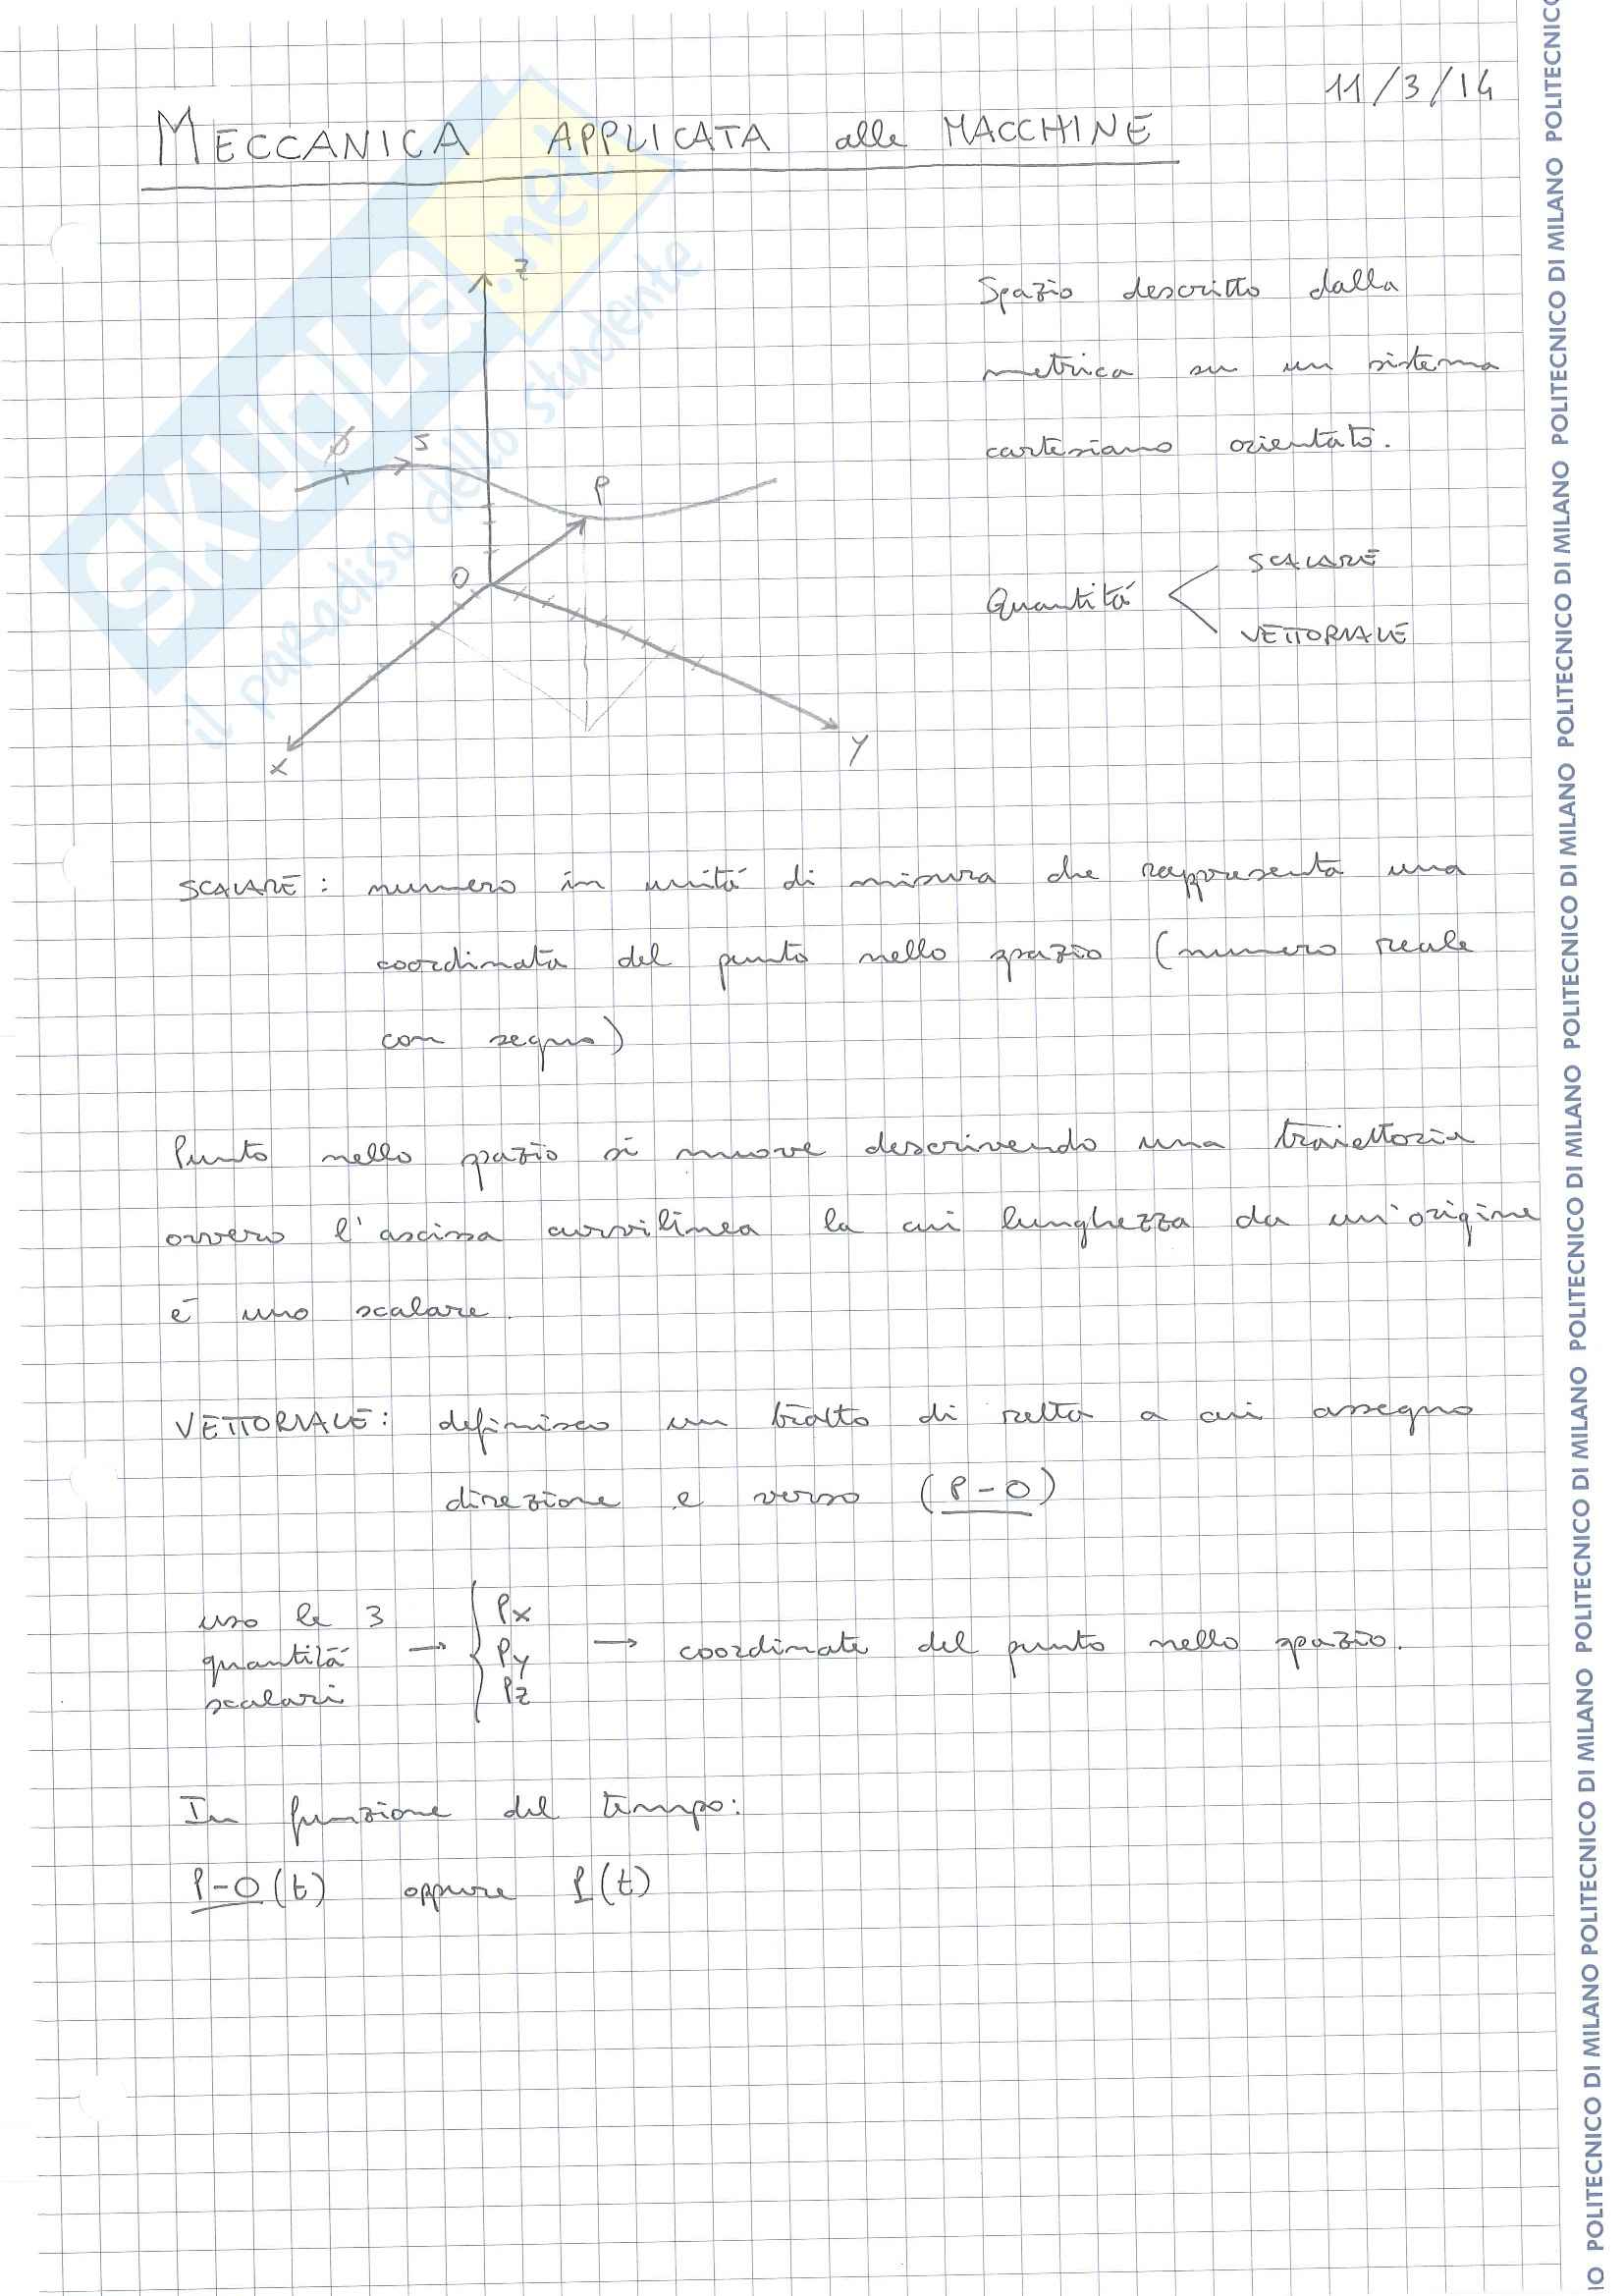 11/3/14
MECCANICA APPLICATA alle MACCHINE
z
Spazio descritto dalla
metrica su un sistema
cartesiano orientato.
Ø S
P
O
SCALARE
Quantitá
VETTORIALE
x
y
SKUOLA.net
il paradiso dello studente
SCALARE: numero in unitá di misura che rappresenta una
coordinata del punto nello spazio (numero reale
con segno)
Punto nello spazio si muove descrivendo una traiettoria
ovvero l'ascissa curvilinea la cui lunghezza da un'origine
é uno scalare.
VETTORIALE: definisco un tratto di retta a cui assegno
direzione e verso (P-O)
uso le 3
quantitá → { Px Py Pz → coordinate del punto nello spazio.
scalari
In funzione del tempo:
P-O(t) oppure P(t)
POLITECNICO DI MILANO POLITECNICO DI MILANO POLITECNICO DI MILANO POLITECNICO DI MILANO POLITECNICO DI MILANO POLITECNICO DI MILANO POLITECNICO DI MILANO POLITECNICO